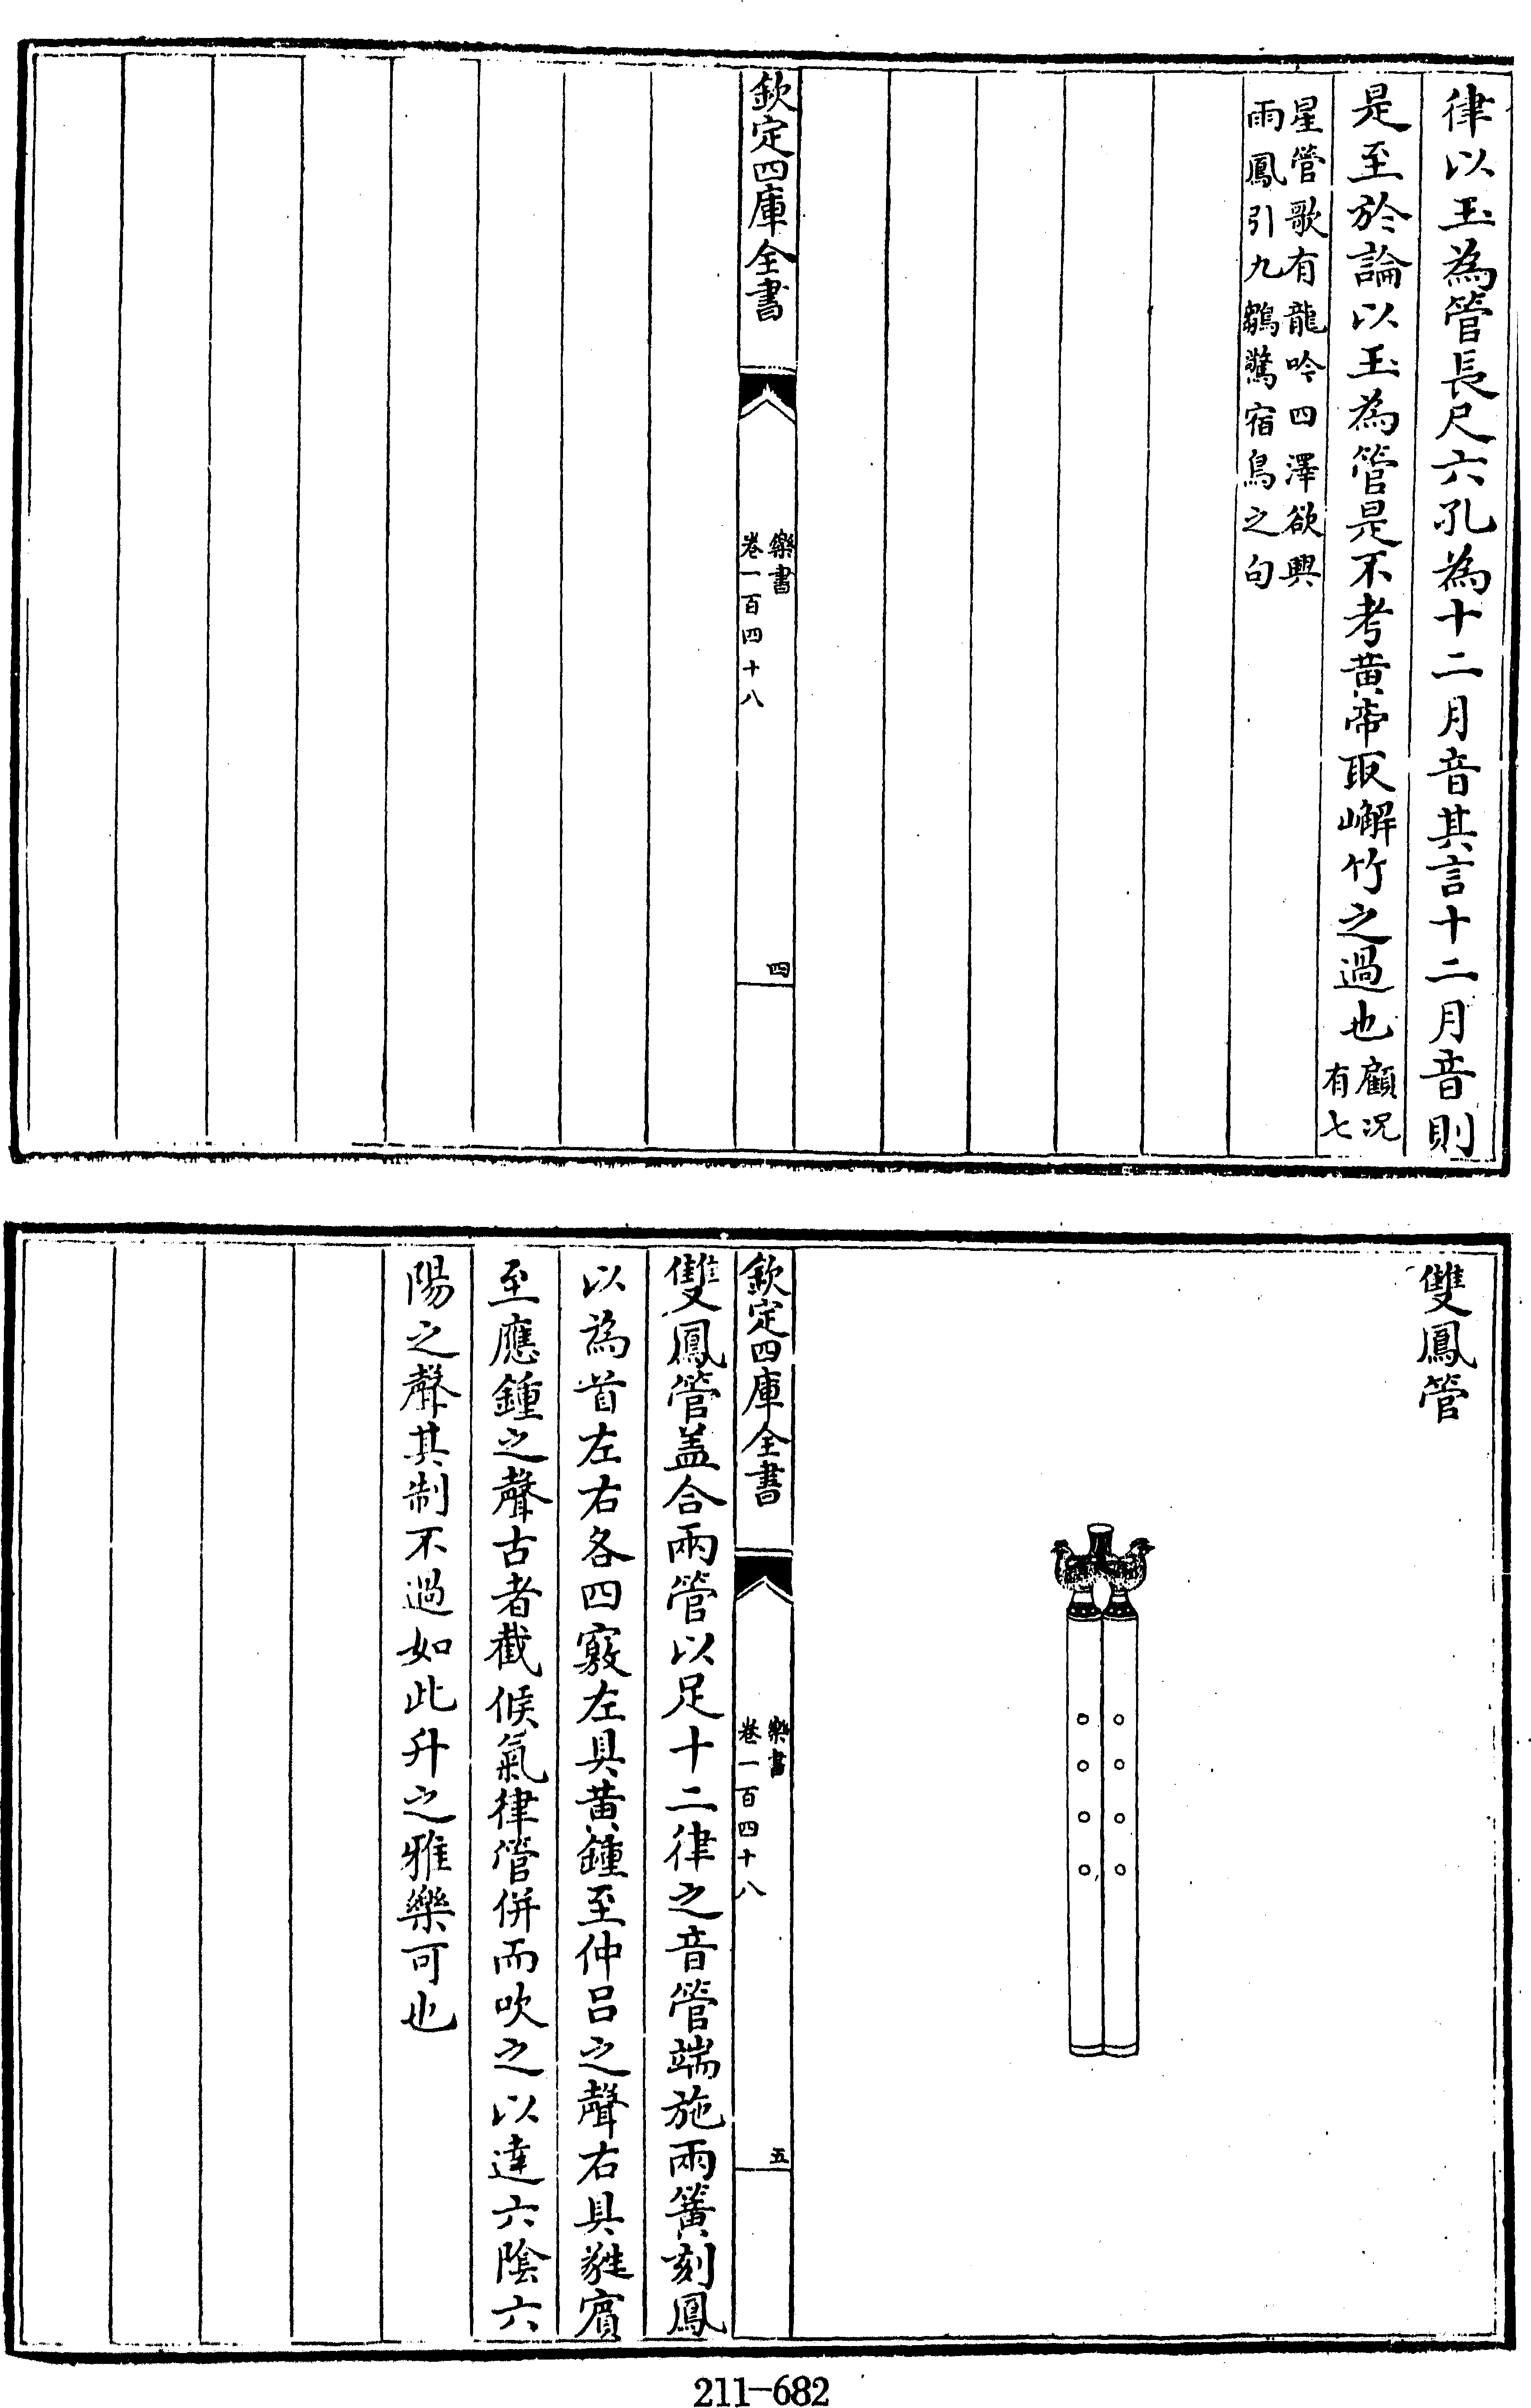 律以玉為管長尺六孔為十二月音其言十二月音則
是至於論以玉為管是不考黄帝取嶰竹之過也顧况
有七
星管歌有龍吟四澤欲興
雨鳳引九鶵驚宿鳥之句
欽定四庫全書
樂書
卷一百四十八
四
雙鳳管
欽定四庫全書
樂書
卷一百四十八
五
雙鳳管盖合兩管以足十二律之音管端施兩簧刻鳳
以為首左右各四竅左具黄鍾至仲吕之聲右具蕤賓
至應鍾之聲古者截候氣律管併而吹之以達六陰六
陽之聲其制不過如此升之雅樂可也
211-682